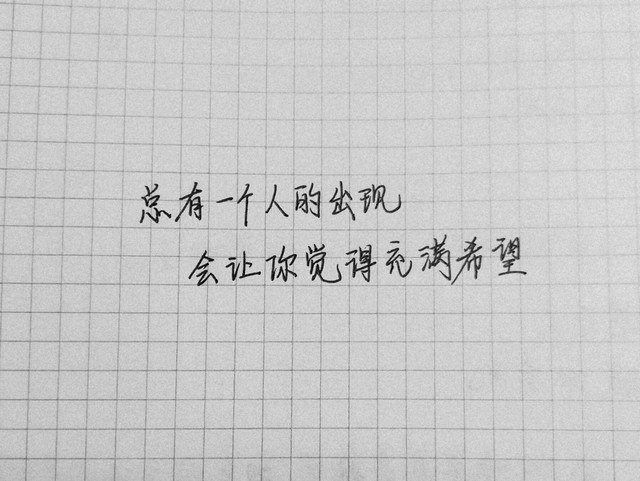 总有一个人的出现
会让你觉得充满希望